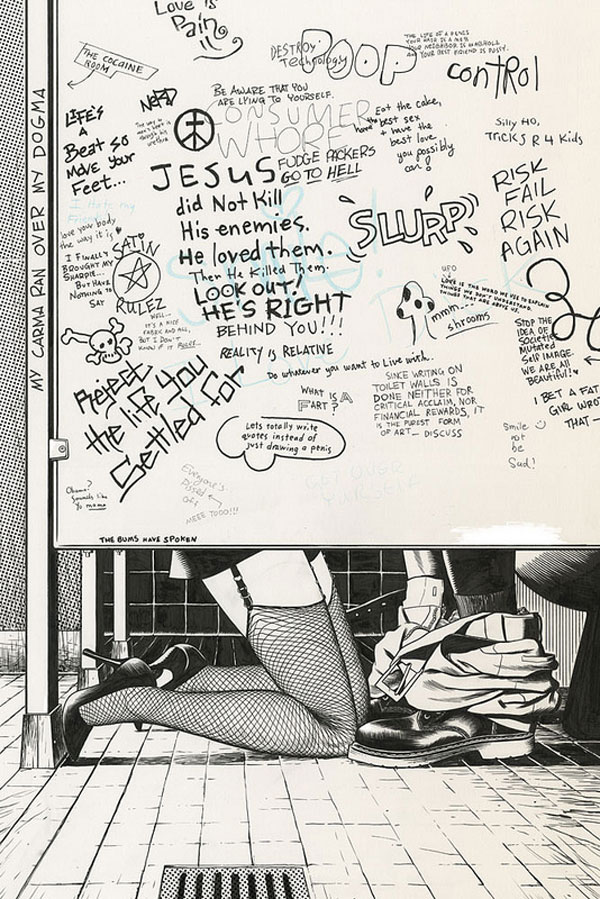 Love is
Pain
THE COCAINE
ROOM
DESTROY
Technology
POOP
THE LIFE OF A PENIS
YOUR HAIR IS A MESS
YOUR NEIGHBOR IS AN ASSHOLE
AND YOUR BEST FRIEND IS PUSSY.
CONTROL
NERD
BE AWARE THAT YOU
ARE LYING TO YOURSELF.
CONSUMER
WHORE
Eat the cake,
have the best sex
+ have the
best love
you possibly
can!
Silly HO,
TRiCKS R 4 Kids
LIFE'S
A
Beat so
MOVE YOUR
FEET...
MY CARMA RAN OVER MY DOGMA
JESUS
did Not Kill
His enemies.
He loved them.
Then He Killed Them.
LOOK OUT!
HE'S RIGHT
BEHIND YOU!!!
FUDGE PACKERS
GO TO HELL
SLURP
RISK
FAIL
RISK
AGAIN
I Hate my
love your body
the way it is
I FINALLY
BROUGHT MY
SHARPIE...
BUT HAVE
NOTHING TO
SAY
SATIN
RULEZ
WELL...
IT'S A NICE
FABRIC AND ALL,
BUT I DON'T
KNOW IF IT RULES...
UFO
LOVE IS THE WORD WE USE TO EXPLAIN
THINGS WE DON'T UNDERSTAND.
THINGS THAT ARE ABOVE US.
mmm..
shrooms
STOP THE
IDEA OF
Societies
Mutated
Self IMAGE.
WE ARE ALL
BEAUTIFUL!
REALITY IS RELATIVE
Do whatever you want to Live wish.
Reject
the life you
Settled for
WHAT IS A
FART?
SINCE WRITING ON
TOILET WALLS IS
DONE NEITHER FOR
CRITICAL ACCLAIM, NOR
FINANCIAL REWARDS, IT
IS THE PUREST FORM
OF ART— DISCUSS
I BET A FAT
GIRL WROTE
THAT—
Lets totally write
quotes instead of
just drawing a penis
Smile
not
be
Sad!
Obama?
Sounds like
Yo mama
Everyone's
Pissed
Off
MEEE TOOO!!!
GET OVER
YOURSELF
THE BUMS HAVE SPOKEN